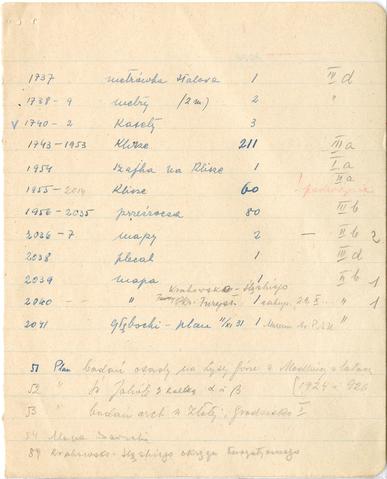 1737 metrówka stalowa 1 IV d
1738-9 metry (2 m) 2 "
V 1740-2 Kasety 3
1743-1953 Klisze 211 III a
1954 szafka na klisze 1 I a
II a
1955-2014 Klisze 60
1956-2035 przeźrocza 80 III b
2036-7 mapy 2 — II b 2
2038 plecak 1 III d
2039 mapa 1 II b 1
Krakowsko-Śląskiego
2040 - - " Okr. Turyst. 1 zakup. " 1
2041 Głębocki - plan 1 "
51 Plan badań osady na Łysej Górze
52 " św Jakób z kaplicą α i β [1924 i 926
53 " badań arch w Złotej, Grodzisko I
54 Mapa
89 Krakowsko-Śląskiego okręgu turystycznego